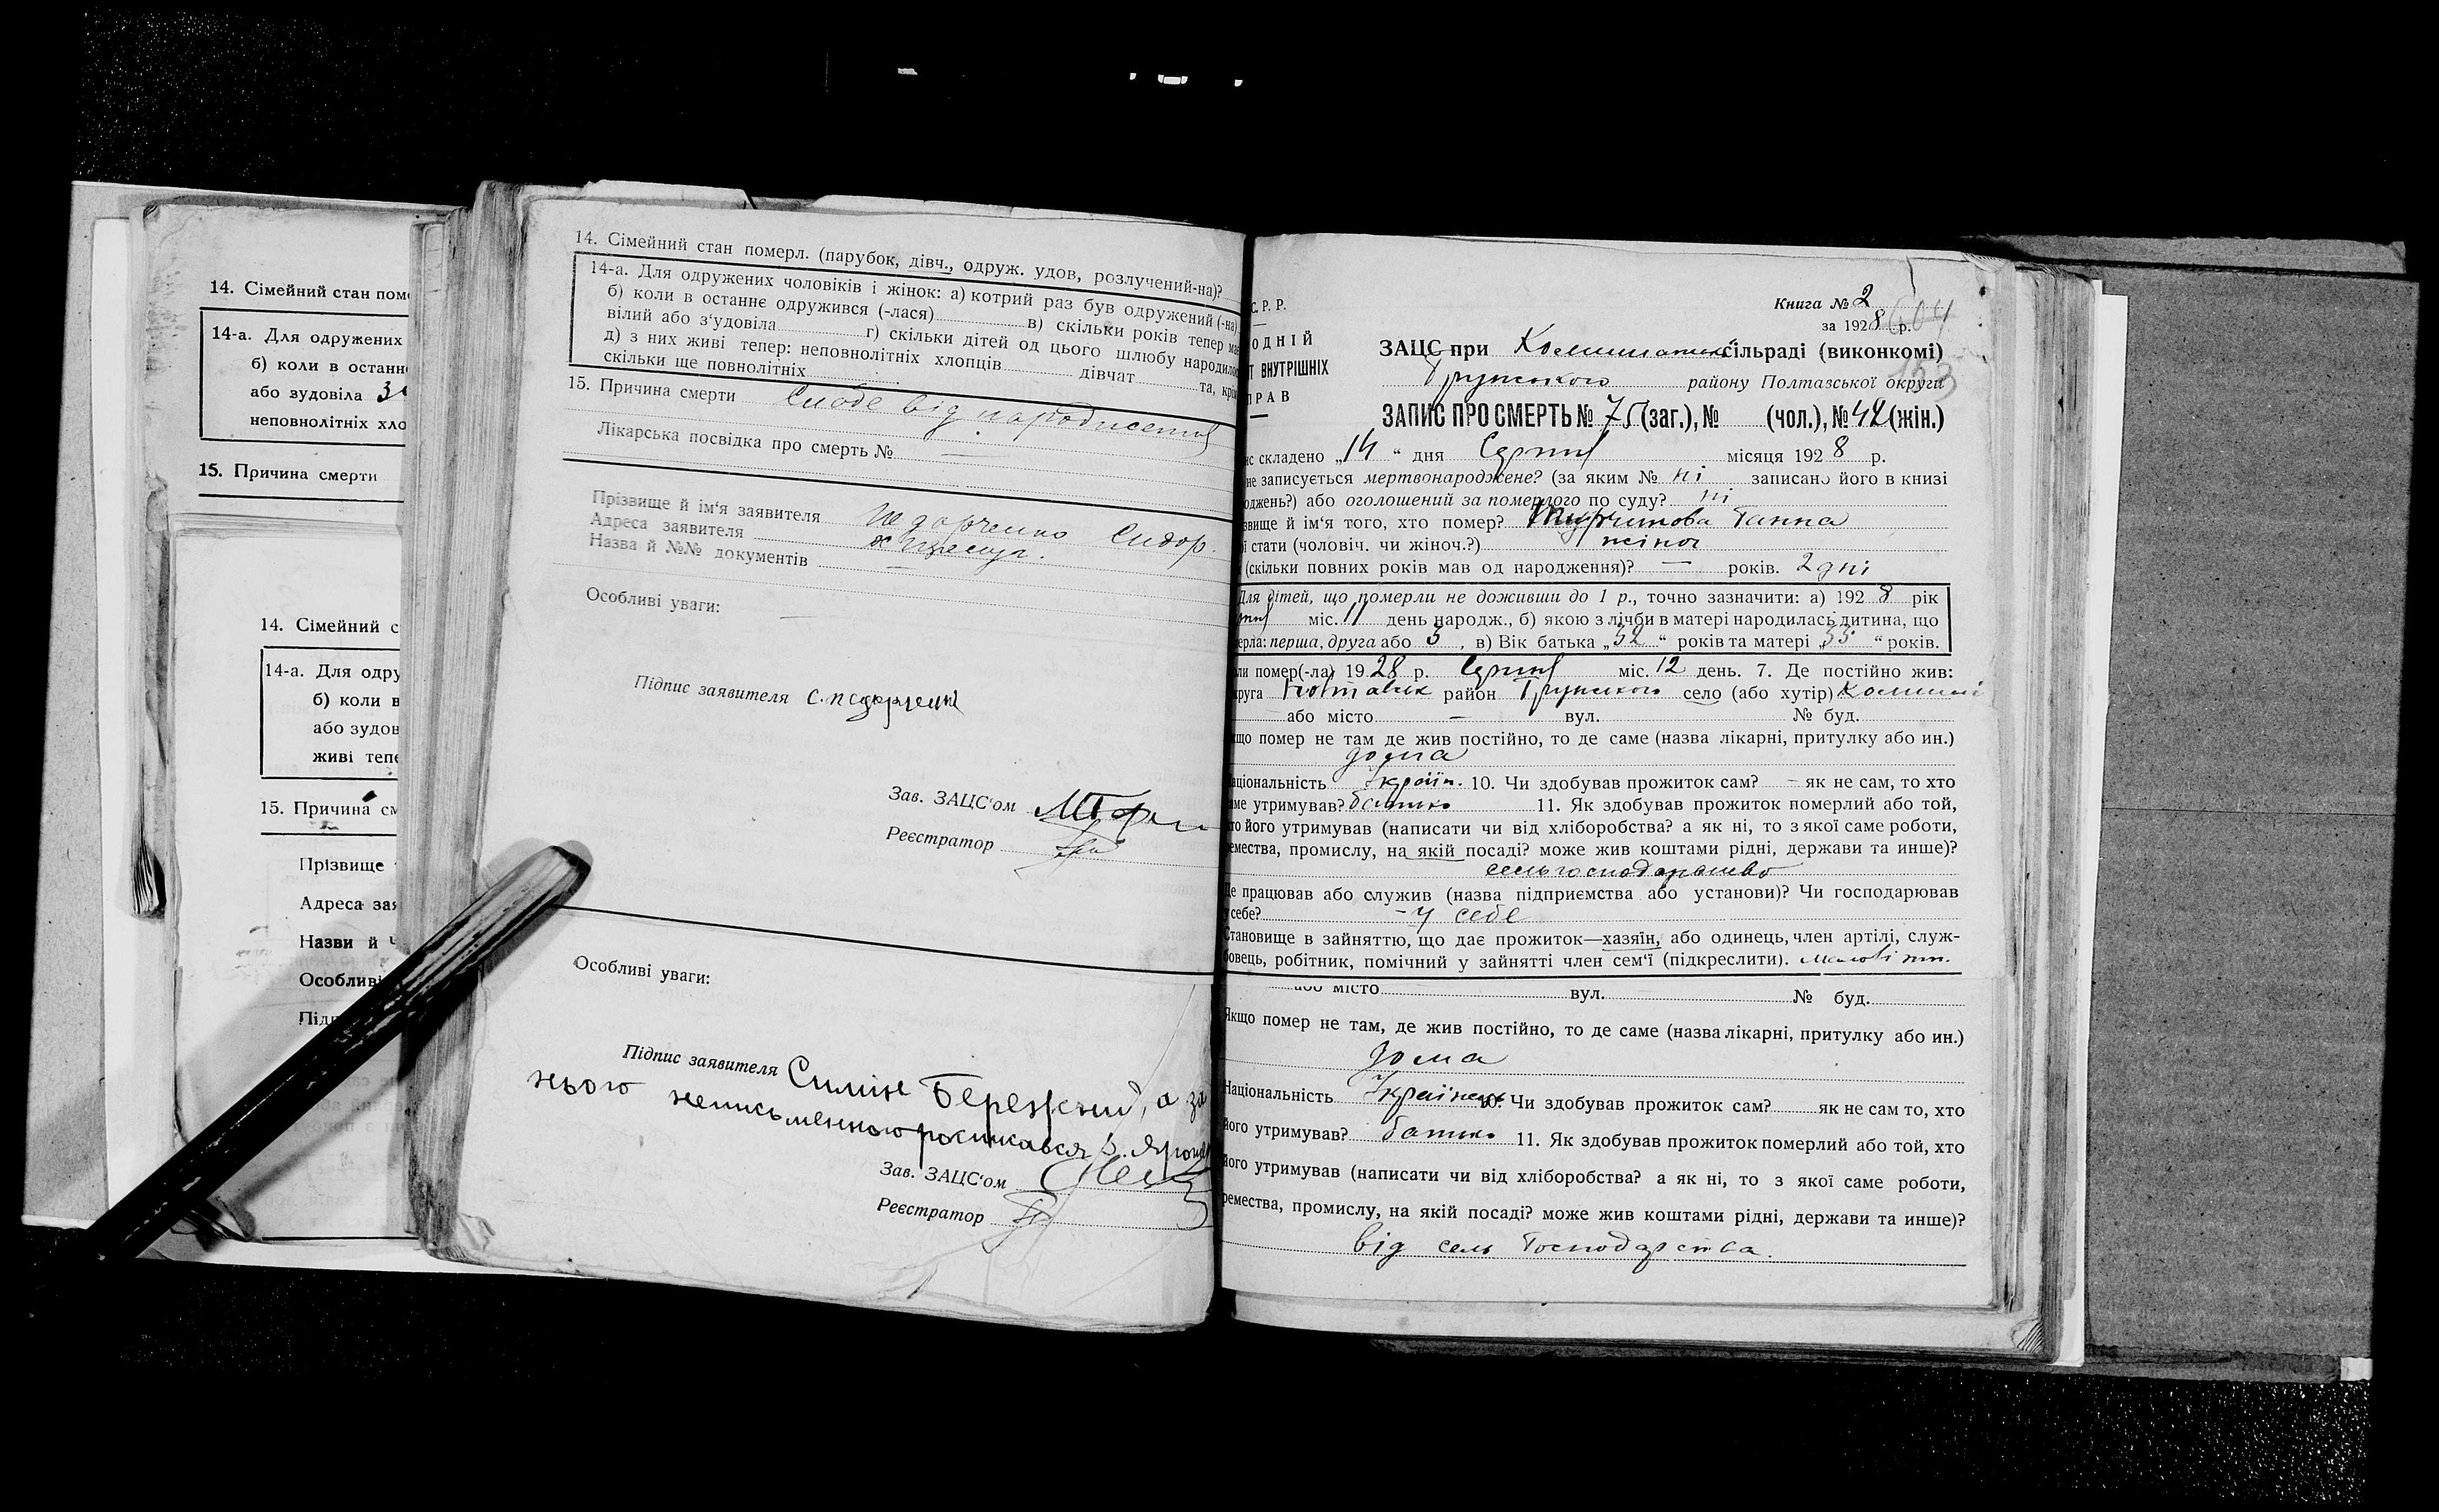 14. Сімейний стан пом
14-а. Для одружених
б) коли в останн
або зудовіла
неповнолітніх хло
15. Причина смерти
14. Сімейний с
14-а. Для одру
б) коли в
або зудов
живі тепе
15. Причина см
Прізвище
Адреса зая
Назви й
Особливі
Підп
14. Сімейний стан померл. (парубок, дівч., одруж. удов, розлучений-на)?
14-а. Для одружених чоловіків і жінок: а) котрий раз був одружений (-на)
б) коли в останнє одружився (-лася) в) скільки років тепер має
вілий або з‘удовіла г) скільки дітей од цього шлюбу народилос
д) з них живі тепер: неповнолітніх хлопців дівчат та, крім
скільки ще повнолітніх
15. Причина смерти слабе від народження
Лікарська посвідка про смерть № —
Прізвище й ім‘я заявителя Сидор.
Адреса заявителя
Назва й №№ документів —
Особливі уваги: —
Підпис заявителя
Зав. ЗАЦС‘ом
Реєстратор
Особливі уваги:
Підпис заявителя Бережний, а за
нього неписьменного росписався
Зав. ЗАЦС‘ом
Реєстратор
С.Р.Р.
ОДНІЙ
Т ВНУТРІШНІХ
ПРАВ
Книга № 2
604
за 1928 р.
ЗАЦС при сільраді (виконкомі)
153
району Полтавської округи
ЗАПИС ПРО СМЕРТЬ № 75 (заг.), № (чол.), № 42 (жін.)
ис складено „14“ дня Серпня місяця 1928 р.
не записується мертвонароджене? (за яким № ні записано його в книзі
оджень?) або оголошений за померлого по суду? ні
звище й ім‘я того, хто помер? Ганна
ї стати (чоловіч. чи жіноч.?) жіноч
(скільки повних років мав од народження)? — років. 2 дні
Для дітей, що померли не доживши до 1 р., точно зазначити: а) 1928 рік
пня міс. 11 день народж., б) якою з лічби в матері народилась дитина, що
ерла: перша, друга або 5, в) Вік батька „32“ років та матері „33“ років.
ли помер(-ла) 1928 р. Серпня міс. 12 день. 7. Де постійно жив:
круга Полтавськ район село (або хутір)
або місто — вул. № буд.
кщо помер не там де жив постійно, то де саме (назва лікарні, притулку або ин.)
дома
аціональність Україн. 10. Чи здобував прожиток сам? — як не сам, то хто
аме утримував? батько 11. Як здобував прожиток померлий або той,
то його утримував (написати чи від хліборобства? а як ні, то з якої саме роботи,
емества, промислу, на якій посаді? може жив коштами рідні, держави та инше)?
сельгосподарство
Де працював або служив (назва підприємства або установи)? Чи господарював
у себе? – у себе
Становище в зайняттю, що дає прожиток—хазяїн, або одинець, член артілі, служ-
бовець, робітник, помічний у зайнятті член сем‘ї (підкреслити).
або місто вул. № буд.
Якщо помер не там, де жив постійно, то де саме (назва лікарні, притулку або ин.)
дома
Національність Українець 10. Чи здобував прожиток сам? як не сам то, хто
його утримував? батько 11. Як здобував прожиток померлий або той, хто
його утримував (написати чи від хліборобства? а як ні, то з якої саме роботи,
ремества, промислу, на якій посаді? може жив коштами рідні, держави та инше)?
від сель Господарства.